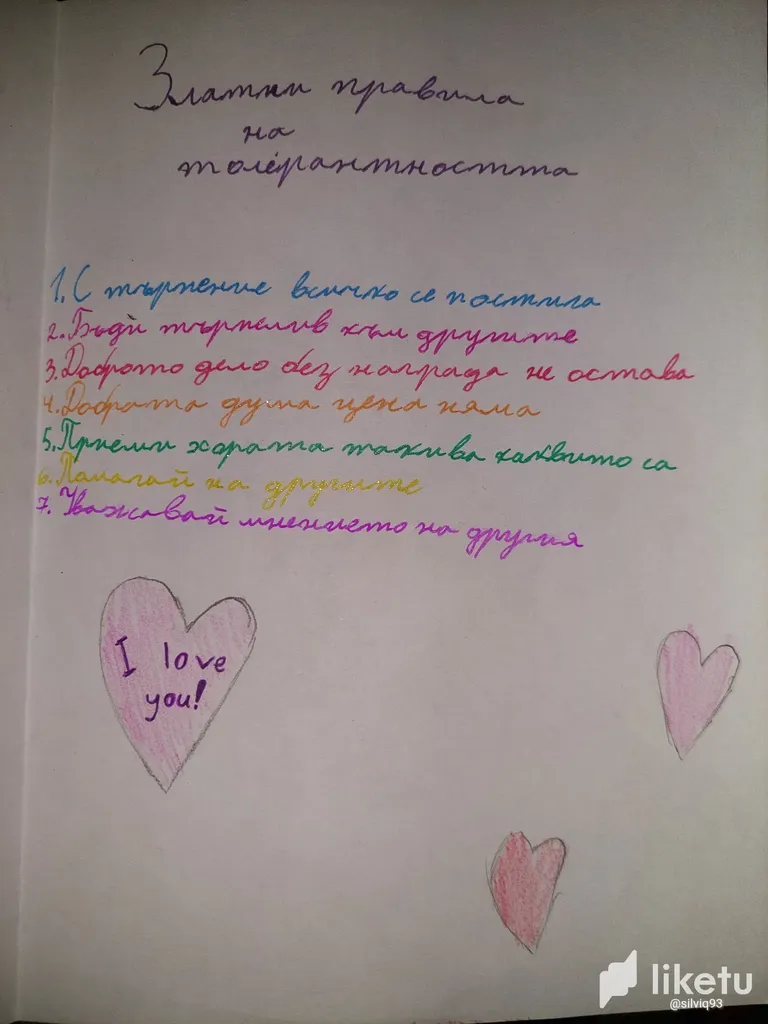 Златни правила
на
толерантността
1. С търпение всичко се постига
2. Бъди търпелив към другите
3. Доброто дело без награда не остава
4. Добрата дума цена няма
5. Приеми хората такива каквито са
6. Помагай на другите
7. Уважавай мнението на другия
I love
you!
liketu
@silviq93